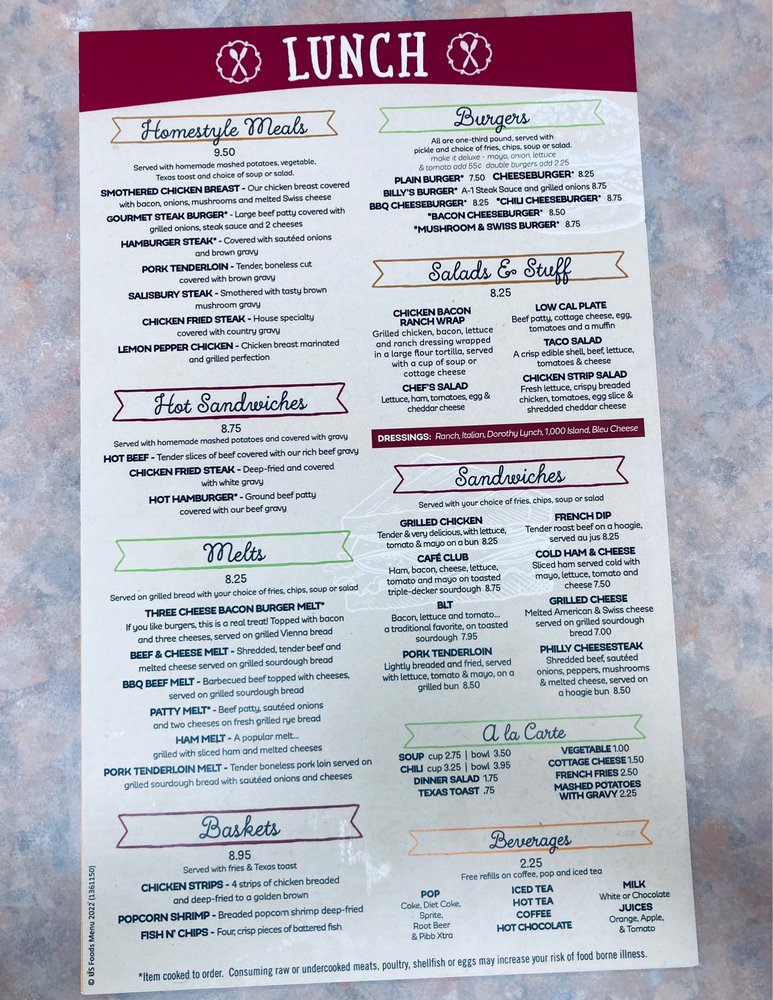 LUNCH
Homestyle Meals
9.50
Served with homemade mashed potatoes, vegetable,
Texas toast and choice of soup or salad.
SMOTHERED CHICKEN BREAST - Our chicken breast covered
with bacon, onions, mushrooms and melted Swiss cheese
GOURMET STEAK BURGER* - Large beef patty covered with
grilled onions, steak sauce and 2 cheeses
HAMBURGER STEAK* - Covered with sautéed onions
and brown gravy
PORK TENDERLOIN - Tender, boneless cut
covered with brown gravy
SALISBURY STEAK - Smothered with tasty brown
mushroom gravy
CHICKEN FRIED STEAK - House specialty
covered with country gravy
LEMON PEPPER CHICKEN - Chicken breast marinated
and grilled perfection
Hot Sandwiches
8.75
Served with homemade mashed potatoes and covered with gravy
HOT BEEF - Tender slices of beef covered with our rich beef gravy
CHICKEN FRIED STEAK - Deep-fried and covered
with white gravy
HOT HAMBURGER* - Ground beef patty
covered with our beef gravy
Melts
8.25
Served on grilled bread with your choice of fries, chips, soup or salad
THREE CHEESE BACON BURGER MELT*
If you like burgers, this is a real treat! Topped with bacon
and three cheeses, served on grilled Vienna bread
BEEF & CHEESE MELT - Shredded, tender beef and
melted cheese served on grilled sourdough bread
BBQ BEEF MELT - Barbecued beef topped with cheeses,
served on grilled sourdough bread
PATTY MELT* - Beef patty, sautéed onions
and two cheeses on fresh grilled rye bread
HAM MELT - A popular melt...
grilled with sliced ham and melted cheeses
PORK TENDERLOIN MELT - Tender boneless pork loin served on
grilled sourdough bread with sautéed onions and cheeses
Baskets
8.95
Served with fries & Texas toast
CHICKEN STRIPS - 4 strips of chicken breaded
and deep-fried to a golden brown
POPCORN SHRIMP - Breaded popcorn shrimp deep-fried
FISH N' CHIPS - Four, crisp pieces of battered fish
Burgers
All are one-third pound, served with
pickle and choice of fries, chips, soup or salad.
make it deluxe - mayo, onion, lettuce
& tomato add 55¢ double burgers add 2.25
PLAIN BURGER* 7.50 CHEESEBURGER* 8.25
BILLY'S BURGER* A-1 Steak Sauce and grilled onions 8.75
BBQ CHEESEBURGER* 8.25 *CHILI CHEESEBURGER* 8.75
*BACON CHEESEBURGER* 8.50
*MUSHROOM & SWISS BURGER* 8.75
Salads & Stuff
8.25
CHICKEN BACON
RANCH WRAP
Grilled chicken, bacon, lettuce
and ranch dressing wrapped
in a large flour tortilla, served
with a cup of soup or
cottage cheese
CHEF'S SALAD
Lettuce, ham, tomatoes, egg &
cheddar cheese
LOW CAL PLATE
Beef patty, cottage cheese, egg,
tomatoes and a muffin
TACO SALAD
A crisp edible shell, beef, lettuce,
tomatoes & cheese
CHICKEN STRIP SALAD
Fresh lettuce, crispy breaded
chicken, tomatoes, egg slice &
shredded cheddar cheese
DRESSINGS: Ranch, Italian, Dorothy Lynch, 1,000 Island, Bleu Cheese
Sandwiches
Served with your choice of fries, chips, soup or salad
GRILLED CHICKEN
Tender & very delicious, with lettuce,
tomato & mayo on a bun 8.25
CAFÉ CLUB
Ham, bacon, cheese, lettuce,
tomato and mayo on toasted
triple-decker sourdough 8.75
BLT
Bacon, lettuce and tomato...
a traditional favorite, on toasted
sourdough 7.95
PORK TENDERLOIN
Lightly breaded and fried, served
with lettuce, tomato & mayo, on a
grilled bun 8.50
FRENCH DIP
Tender roast beef on a hoagie,
served au jus 8.25
COLD HAM & CHEESE
Sliced ham served cold with
mayo, lettuce, tomato and
cheese 7.50
GRILLED CHEESE
Melted American & Swiss cheese
served on grilled sourdough
bread 7.00
PHILLY CHEESESTEAK
Shredded beef, sautéed
onions, peppers, mushrooms
& melted cheese, served on
a hoagie bun 8.50
A la Carte
SOUP cup 2.75 | bowl 3.50
CHILI cup 3.25 | bowl 3.95
DINNER SALAD 1.75
TEXAS TOAST .75
VEGETABLE 1.00
COTTAGE CHEESE 1.50
FRENCH FRIES 2.50
MASHED POTATOES
WITH GRAVY 2.25
Beverages
2.25
Free refills on coffee, pop and iced tea
POP
Coke, Diet Coke,
Sprite,
Root Beer
& Pibb Xtra
ICED TEA
HOT TEA
COFFEE
HOT CHOCOLATE
MILK
White or Chocolate
JUICES
Orange, Apple,
& Tomato
*Item cooked to order. Consuming raw or undercooked meats, poultry, shellfish or eggs may increase your risk of food borne illness.
© US Foods Menu 2022 (1361150)